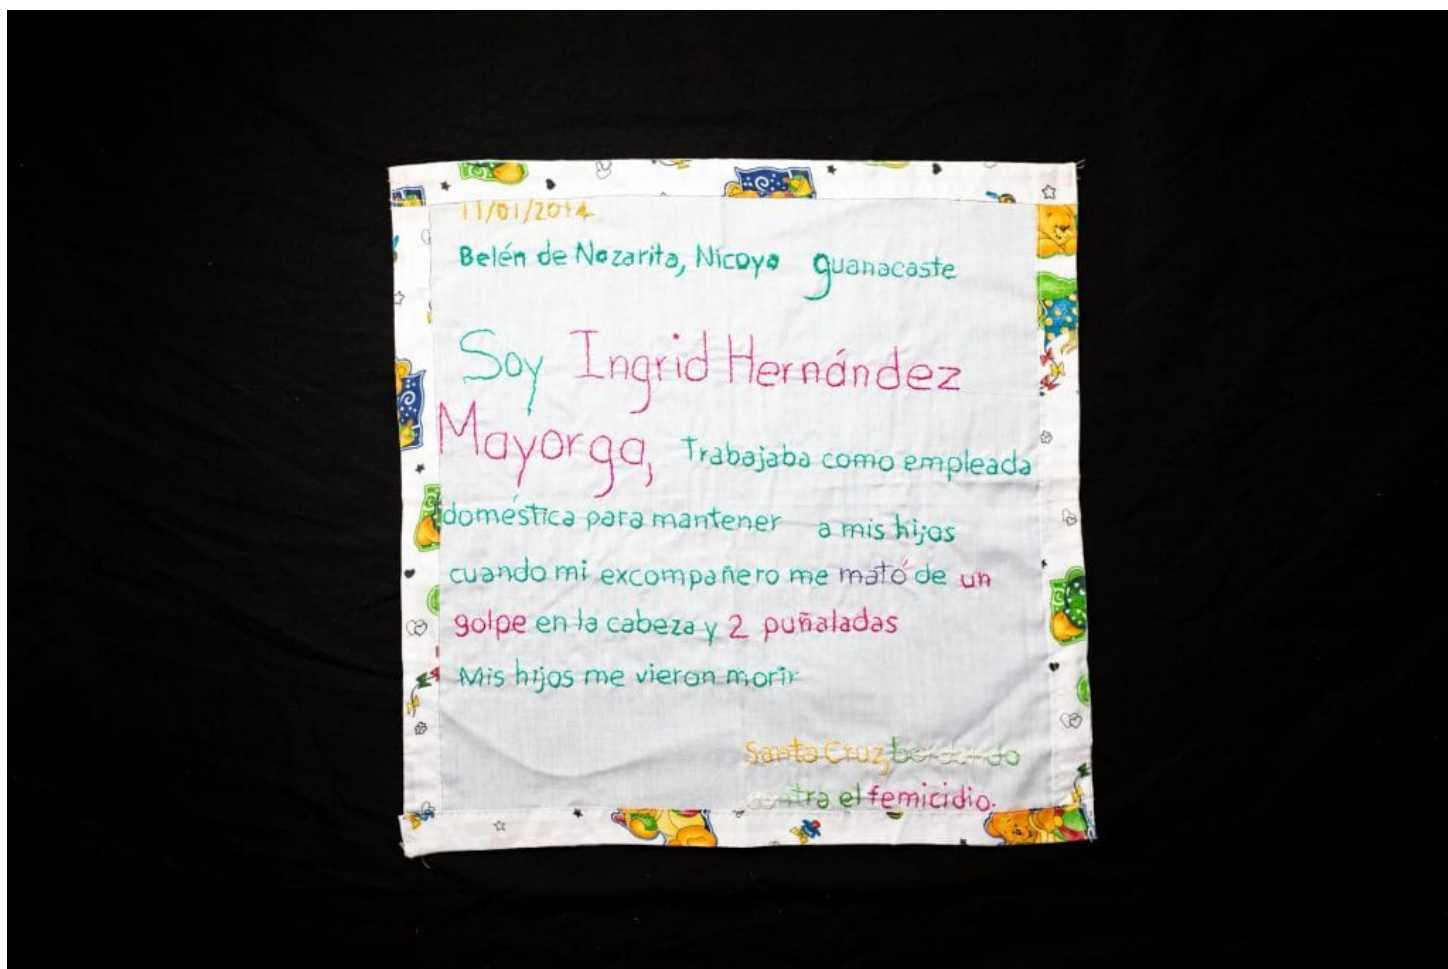 11/01/2014
Belén de Nozarita, Nicoya guanacaste
Soy Ingrid Hernández
Mayorga, Trabajaba como empleada
doméstica para mantener a mis hijos
cuando mi excompañero me mató de un
golpe en la cabeza y 2 puñaladas
Mis hijos me vieron morir
Santa Cruz, bordando
contra el femicidio.